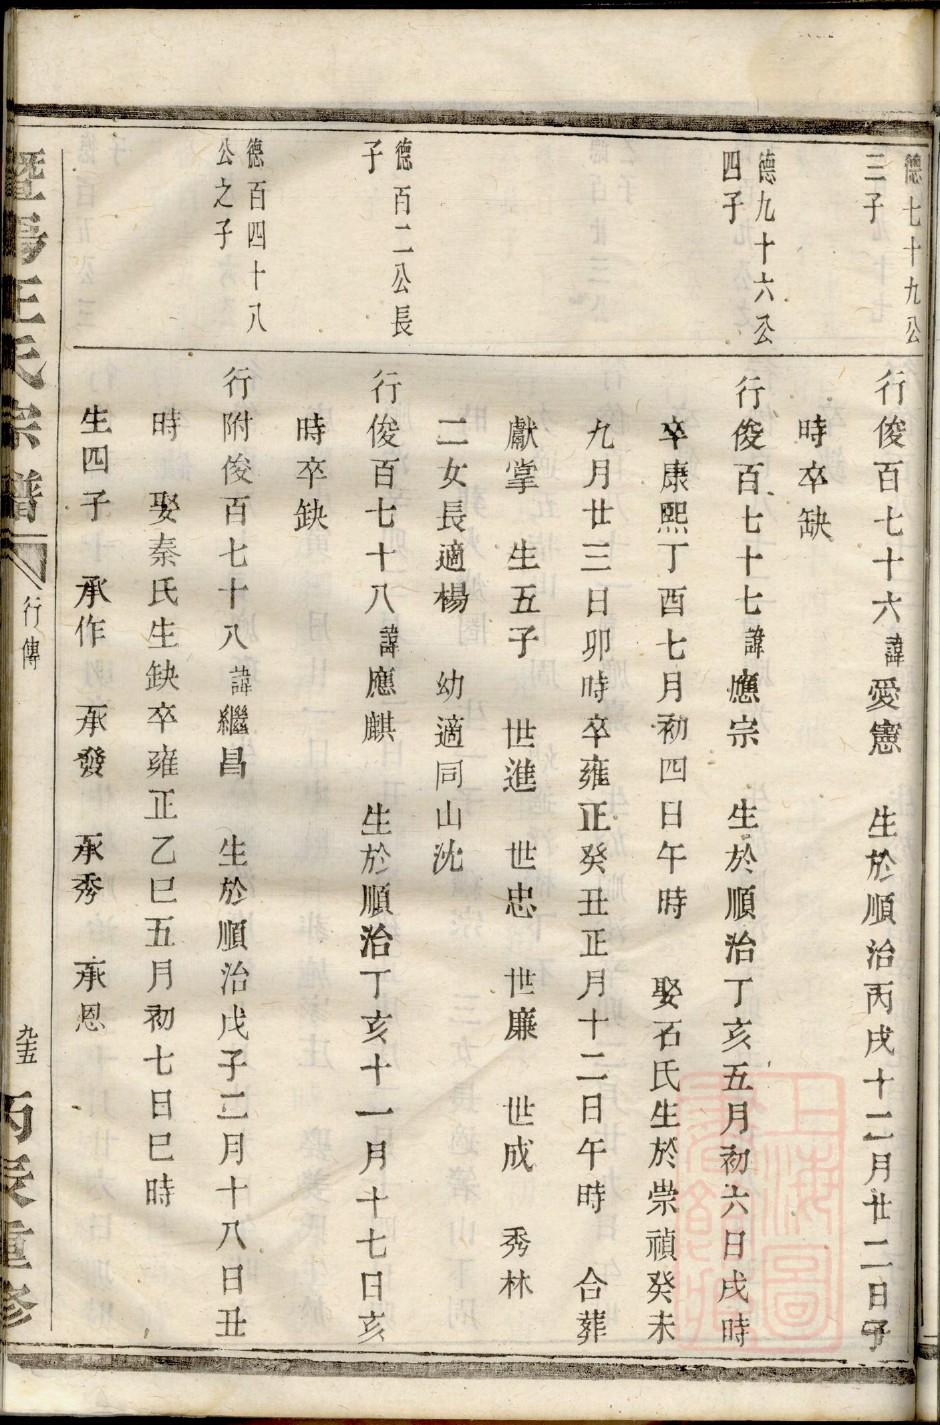 德七十九公
三子
行俊百七十六諱愛憲　生於順治丙戌十二月廿二日子
時卒缺
德九十六公
四子
行俊百七十七諱應宗　生於順治丁亥五月初六日戌時
卒康熙丁酉七月初四日午時　娶石氏生於崇禎癸未
九月廿三日卯時卒雍正癸丑正月十二日午時　合葬
獻掌　生五子　世進　世忠　世廉　世成　秀林
二女長適楊　幼適同山沈
德百二公長
子
行俊百七十八諱應麒　生於順治丁亥十一月十七日亥
時卒缺
德百四十八
公之子
行附俊百七十八諱繼昌　生於順治戊子二月十八日丑
時　娶秦氏生缺卒雍正乙巳五月初七日巳時
生四子　承作　承發　承秀　承恩
暨陽王氏宗譜
行傳
九五
丙辰重修